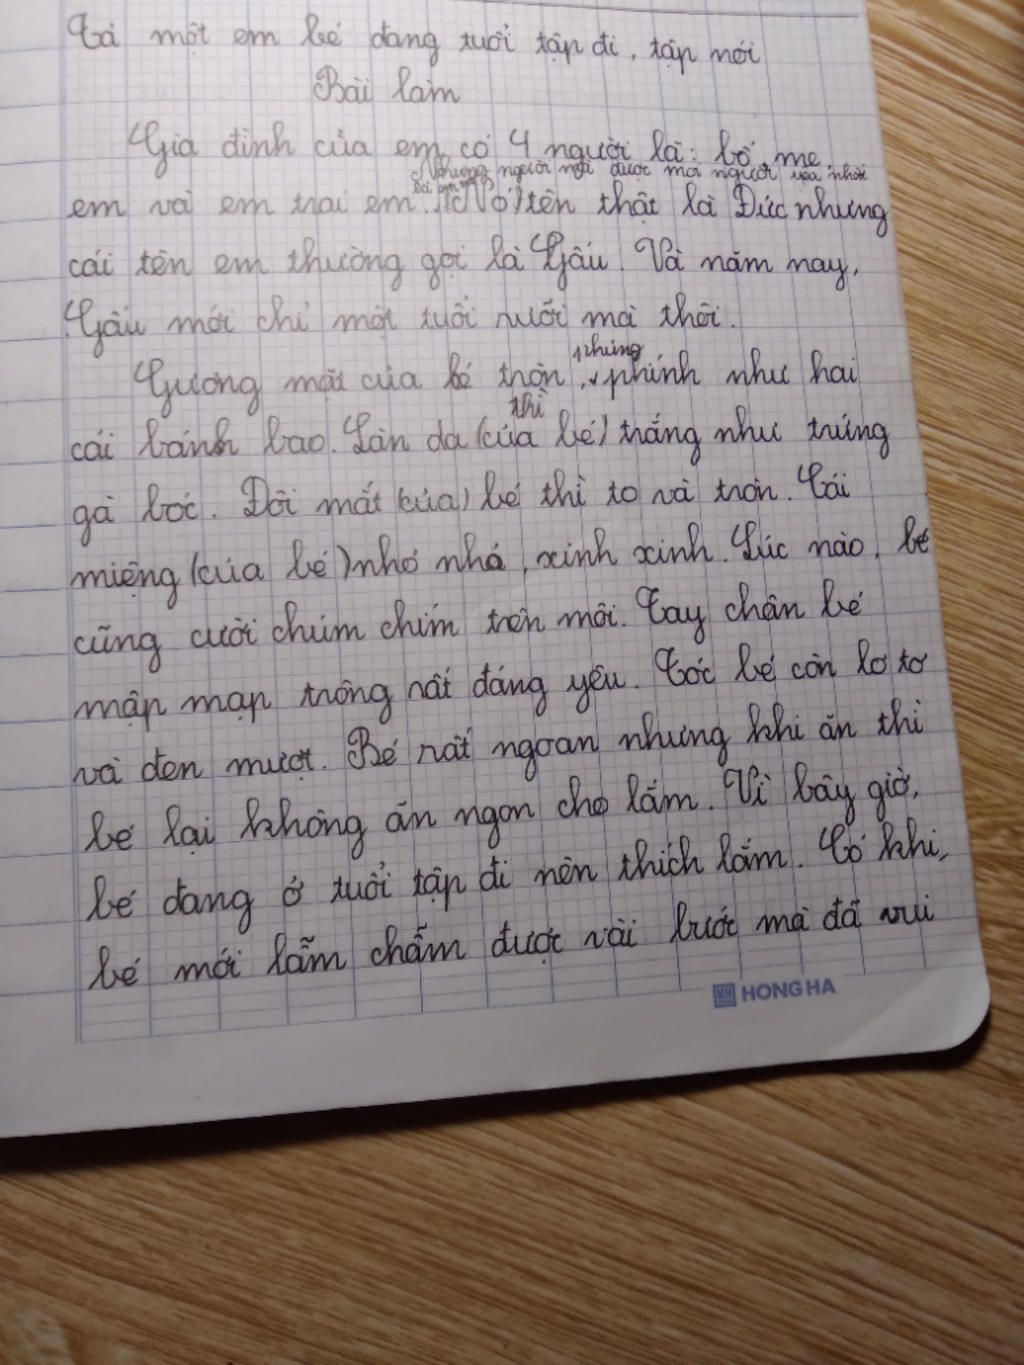 Tả một em bé đang tuổi tập đi, tập nói
Bài làm
Gia đình của em có 4 người là: bố, mẹ,
Nhưng người mà được mọi người yêu nhất
là em
em và em trai em. (Nó) tên thật là Đức nhưng
cái tên em thường gọi là Gấu. Và năm nay,
Gấu mới chỉ một tuổi rưỡi mà thôi.
phúng
Gương mặt của bé tròn, phính như hai
thì
cái bánh bao. Làn da (của bé) trắng như trứng
gà bóc. Đôi mắt (của) bé thì to và tròn. Cái
miệng (của bé) nhỏ nhỏ, xinh xinh. Lúc nào, bé
cũng cười chúm chím trên môi. Tay chân bé
mập mạp trông rất đáng yêu. Tóc bé còn lơ tơ
và đen mượt. Bé rất ngoan nhưng khi ăn thì
bé lại không ăn ngon cho lắm. Vì bây giờ,
bé đang ở tuổi tập đi nên thích lắm. Có khi,
bé mới lẫm chẫm được vài bước mà đã vui
HONG HA